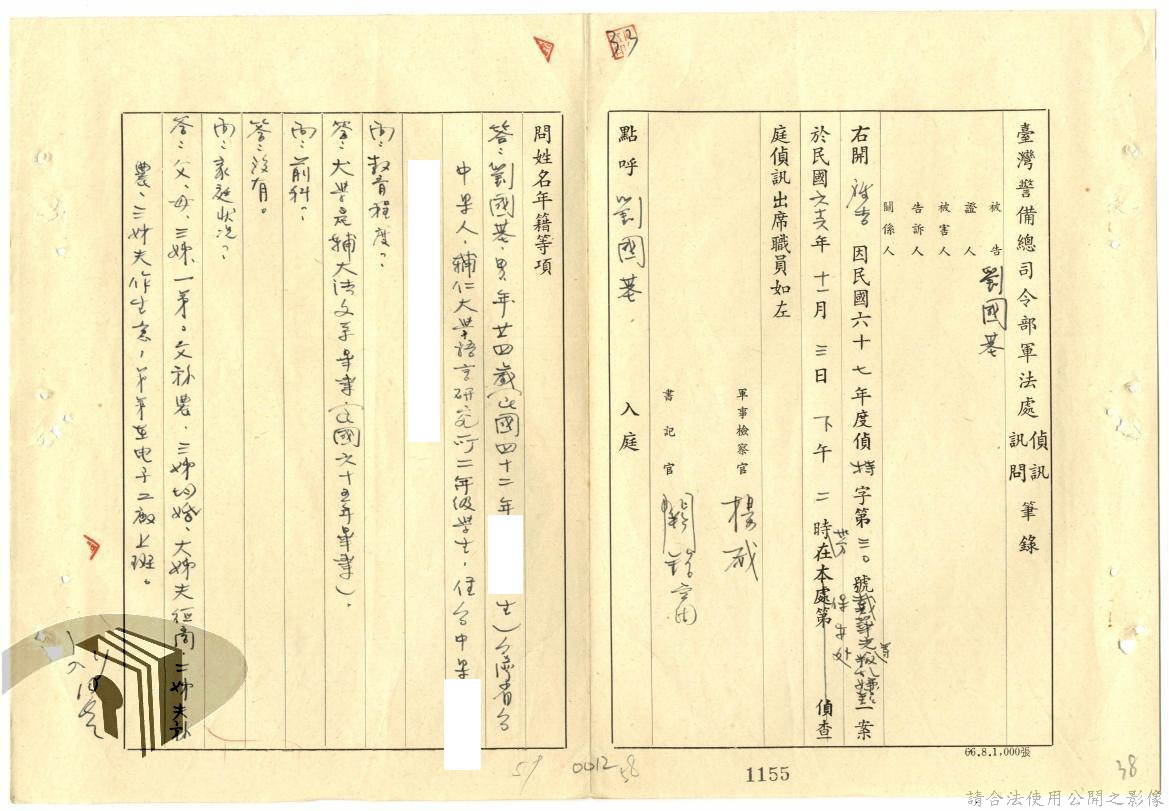 臺灣警備總司令部軍法處偵訊訊問筆錄
被告 劉國基
證人
被害人
告訴人
關係人
右開 被告 因民國六十七年度偵特字第三〇號 一案
於民國六十六年十一月三日下午二時廿分在本處第 保安處 偵查
庭偵訊出席職員如左
軍事檢察官 楊
書記官
點呼 劉國基 入庭
問姓名年籍等項
答:劉國基,男,年廿四歲(民國四十二年 生)台灣省台
中縣人,輔仁大學語言研究所二年級學生,住台中縣
問:教育程度?
答:大學是輔大法文系畢業(民國六十五年畢業)。
問:前科?
答:沒有。
問:家庭狀況?
答:父、母、三姊、一弟。父務農,三姊均婚、大姊夫經商,二姊夫務
農,三姊夫作生意,弟弟在电子工廠上班。
66.8.1,000張
33
59
0012
58
1155
38
請合法使用公開之影像